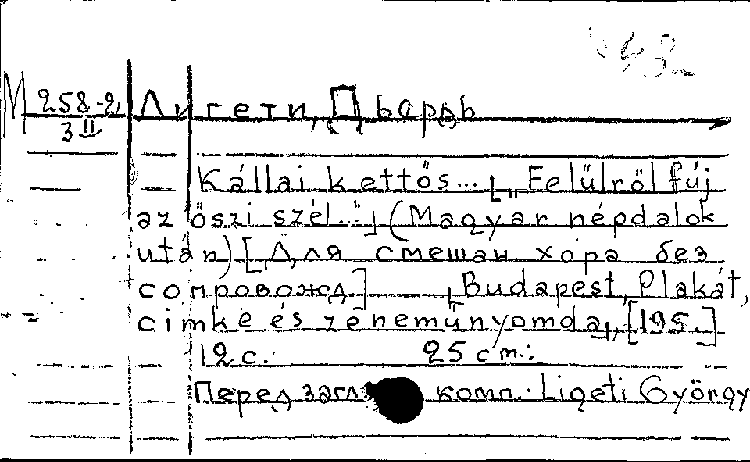 М 258-2
3 II
Лигети, Дьордь
Kállai kettös... [„Felülröl fúj
az öszi szél..."] (Magyar népdalok
után) [Для смешан хора без
сопровожд] [Budapest, Plakát,
cimke és zenemünyomda], [195.]
12 с. 25 см.
Перед загл комп.: Ligeti György